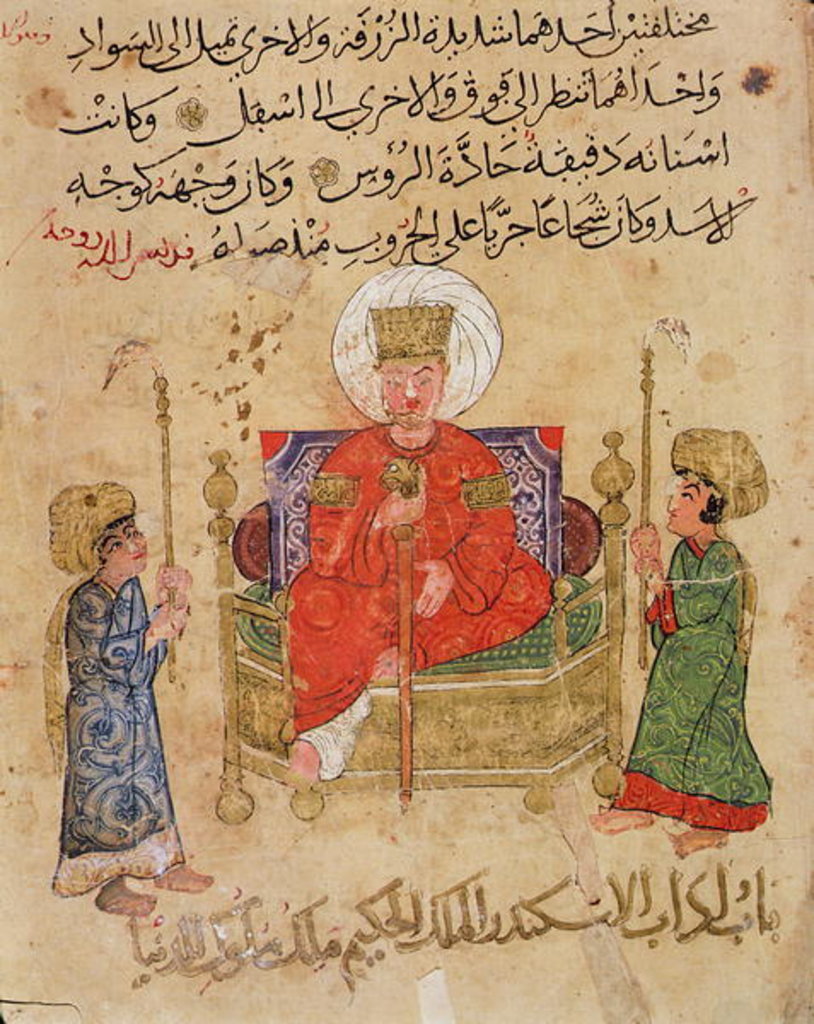 مختلفتين أحدهما شديدة الزرقة والاخرى تميل الى السواد
واحداهما تنظر الى فوق والاخرى الى اسفل وكانت
اسنانه دقيقة حادة الرؤس وكان وجهه كوجه
الاسد وكان شجاعا جريا على الحروب منذ صباه قدس الله روحه
باب اداب الاسكندر الملك الحكيم ملك ملوك الدنيا